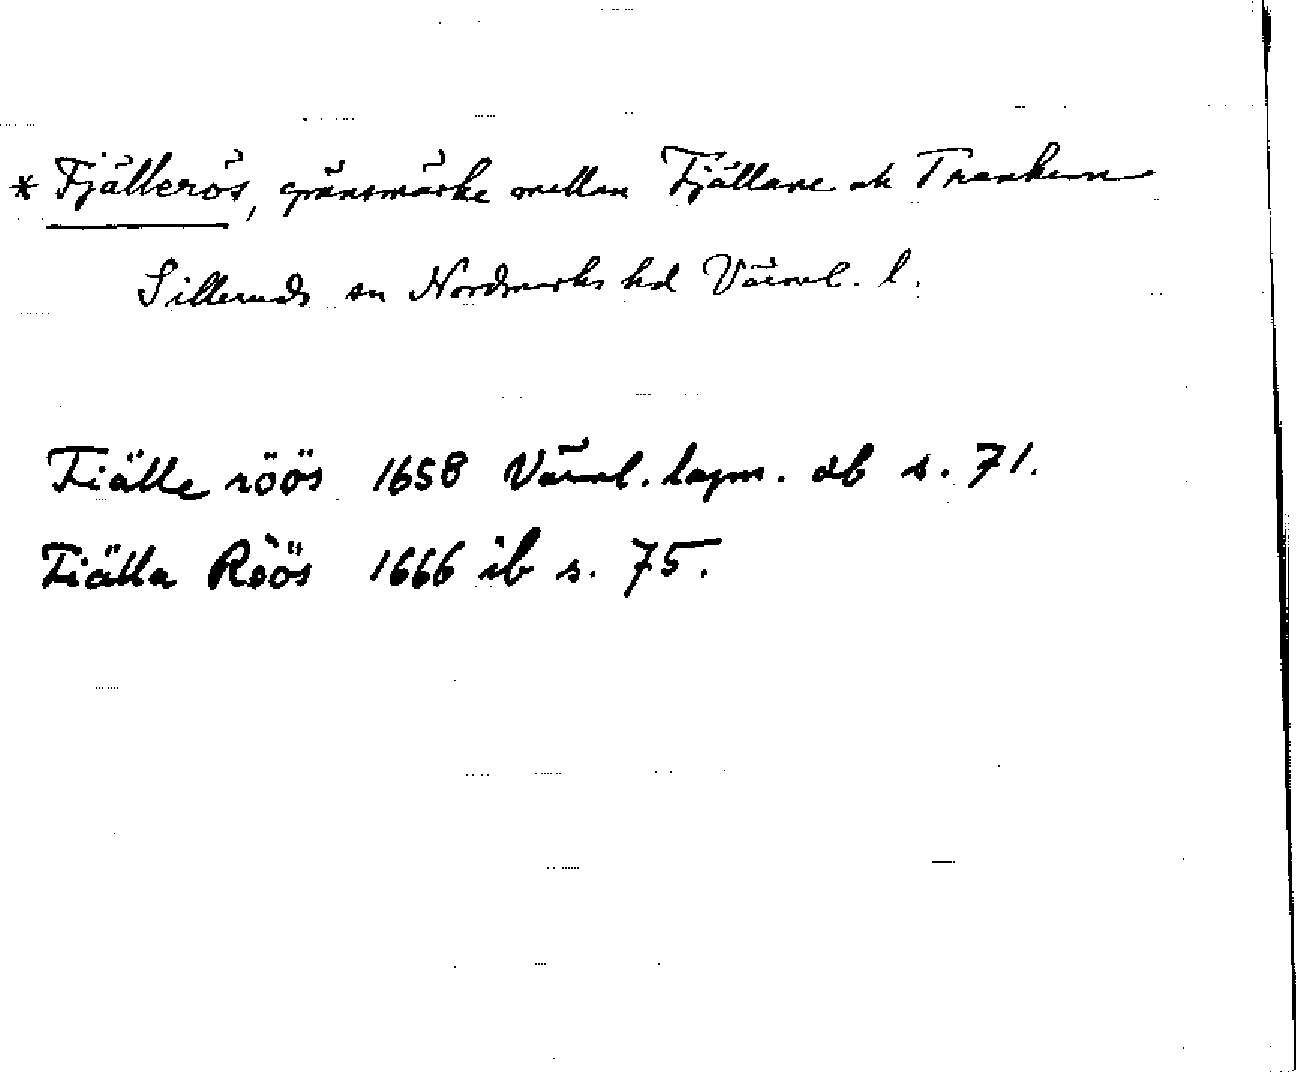 * Fjällerös, gränsmärke mellan Fjällane och Tranken
Silleruds sn Nordmarks hd Värml. l.
Fiälle röös 1658 Värml. lagm. db s. 71.
Fiälla Röös 1666 ib s. 75.